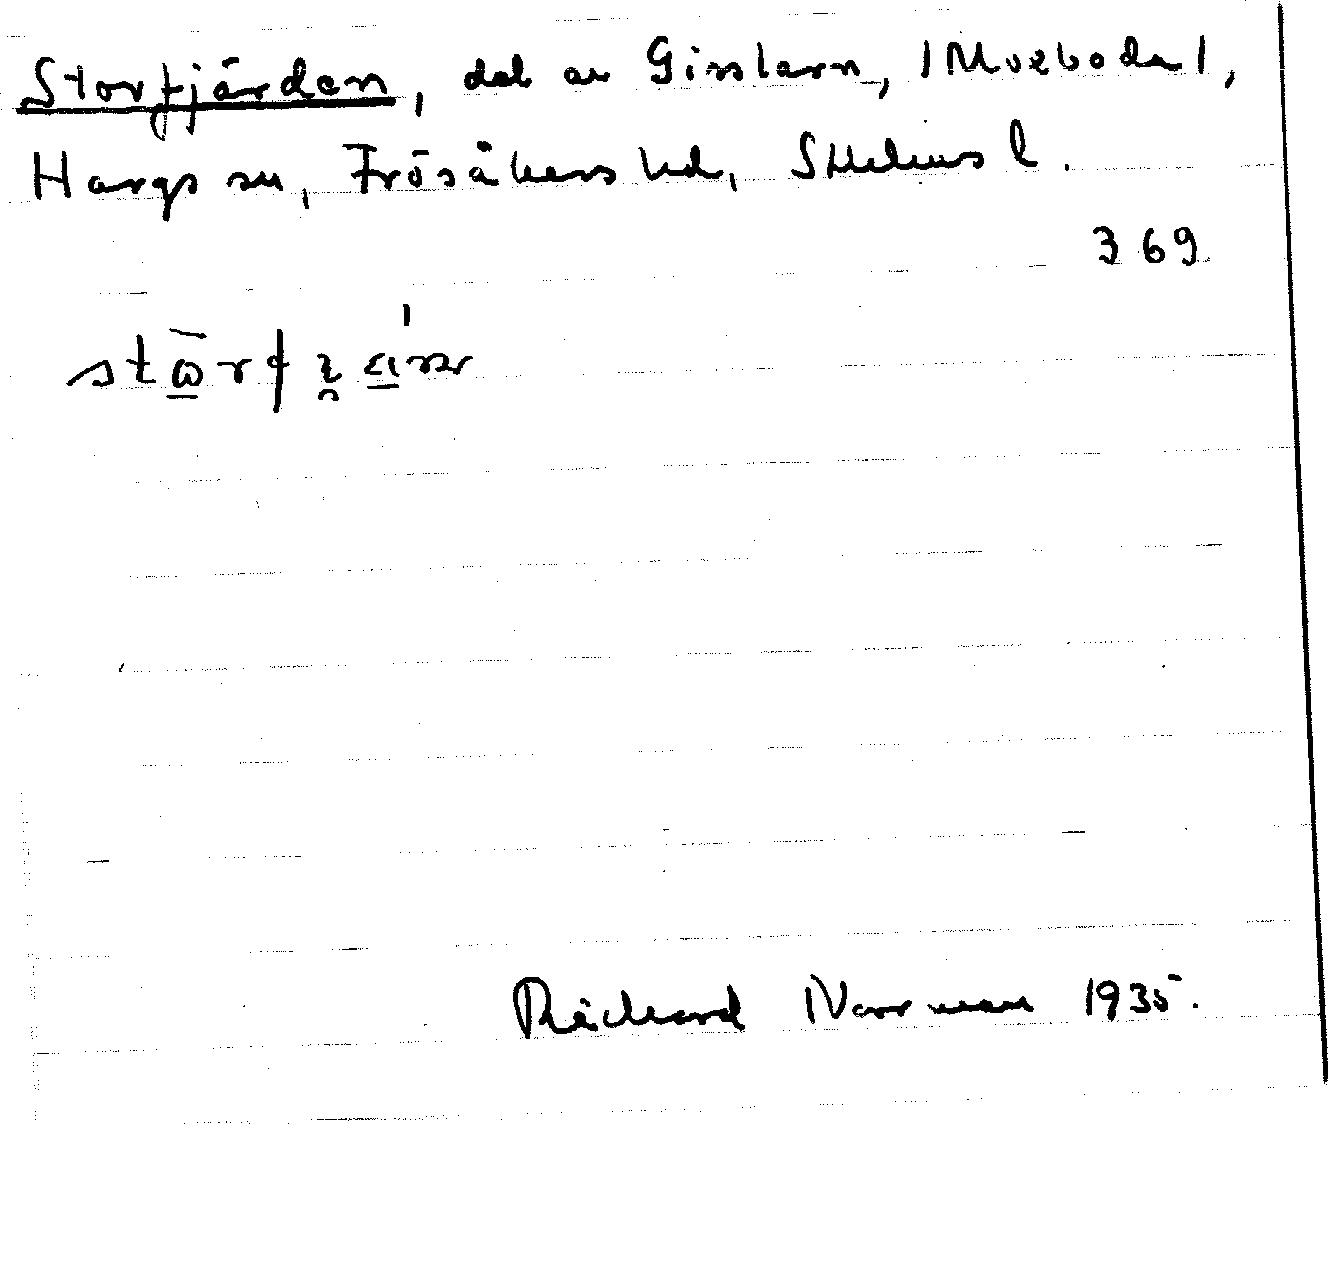 Storfjärden, del av Gisslarn, /Morboda/,
Hargs sn, Frösåkers hd, Sthlms l.
369
Richard Norrman 1935.